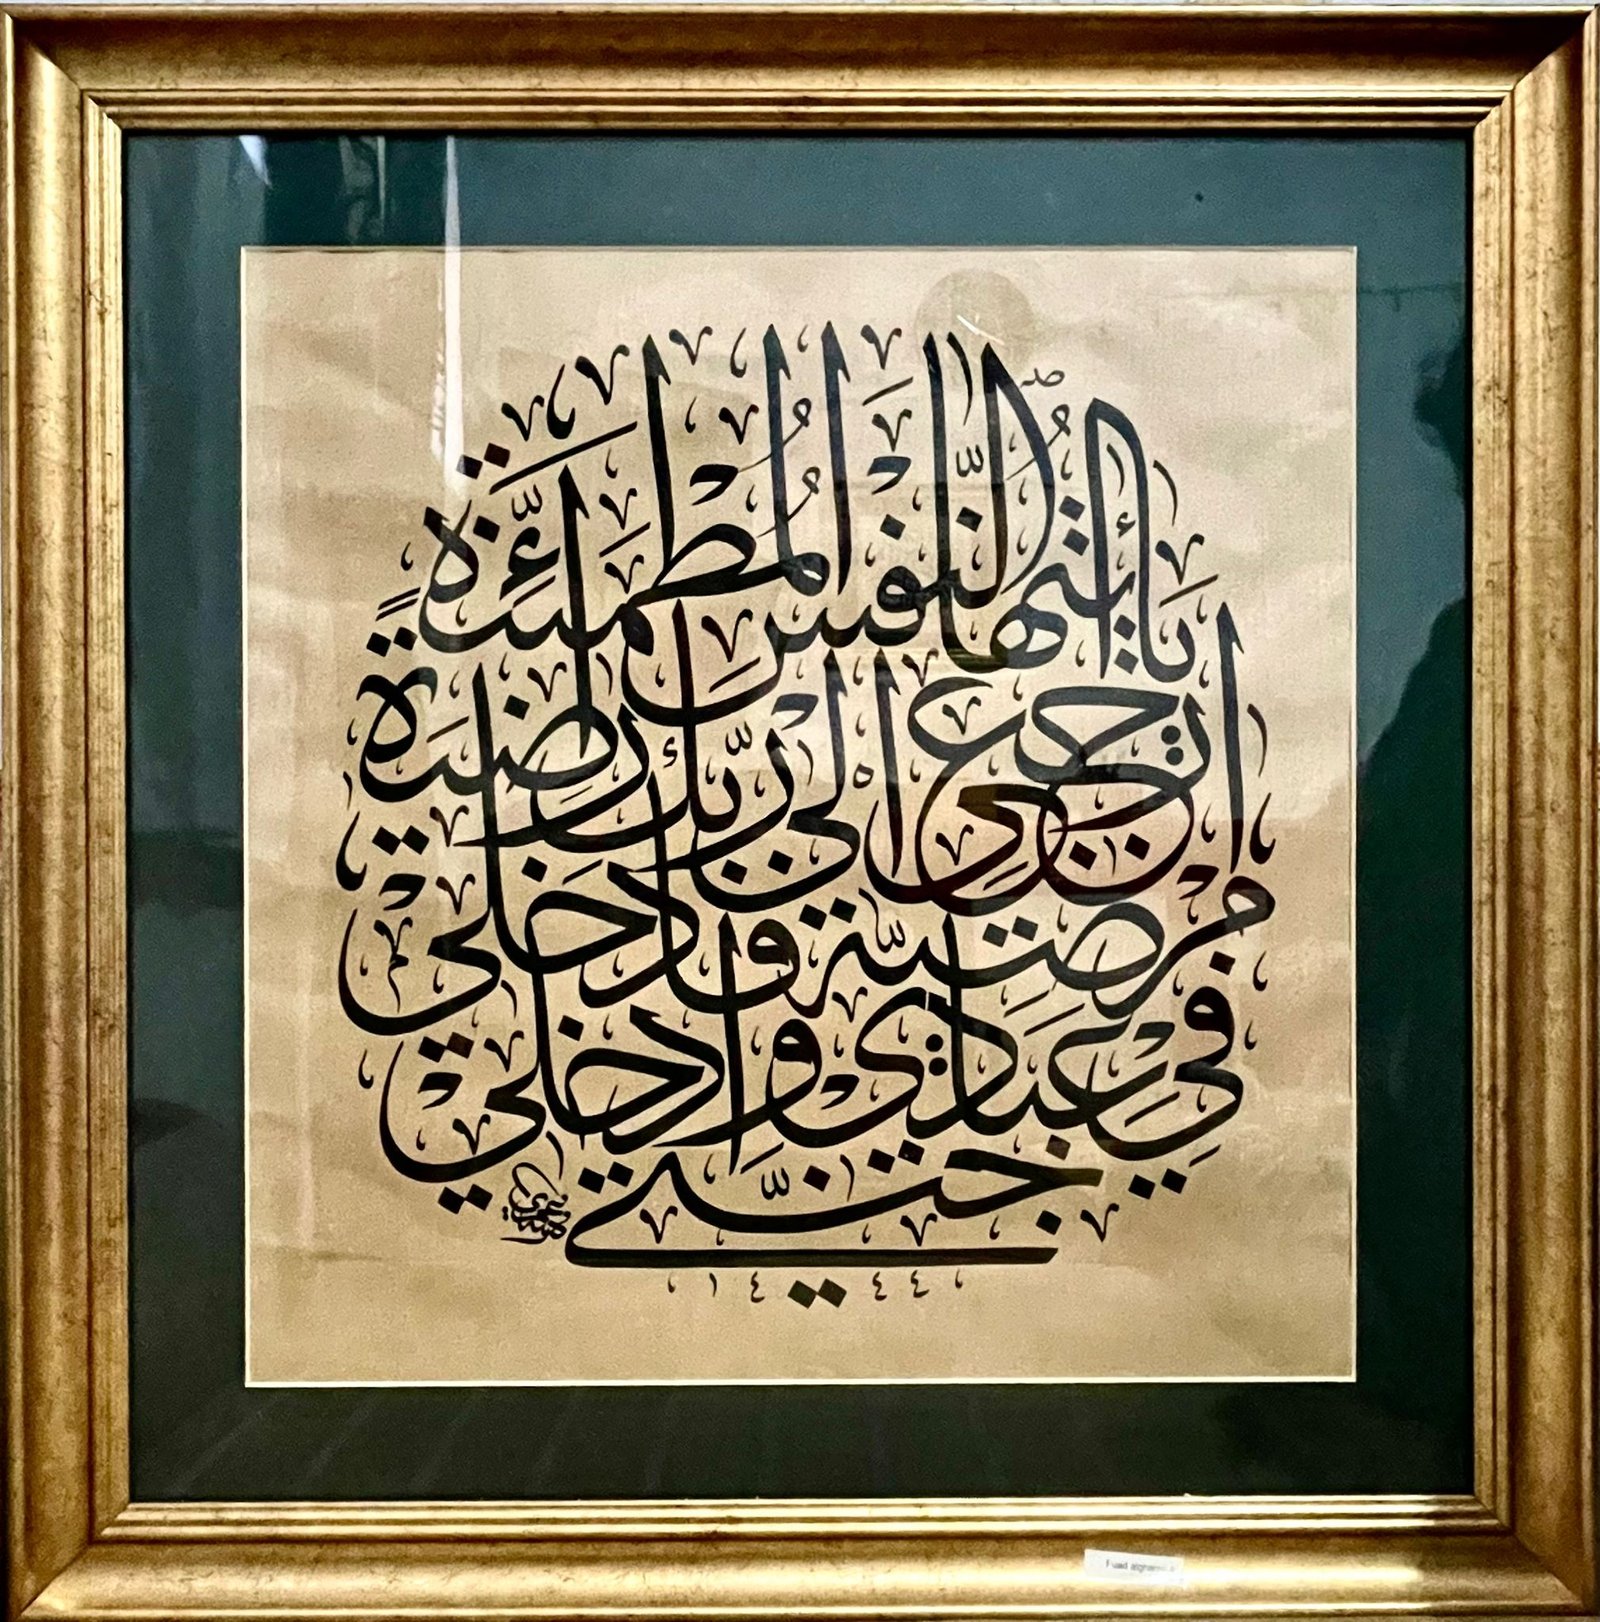 يَا أَيَّتُهَا النَّفْسُ الْمُطْمَئِنَّةُ
ارْجِعِي إِلَى رَبِّكِ رَاضِيَةً
مَرْضِيَّةً فَادْخُلِي
فِي عِبَادِي وَادْخُلِي
جَنَّتِي
١٤٤٤
Fuad